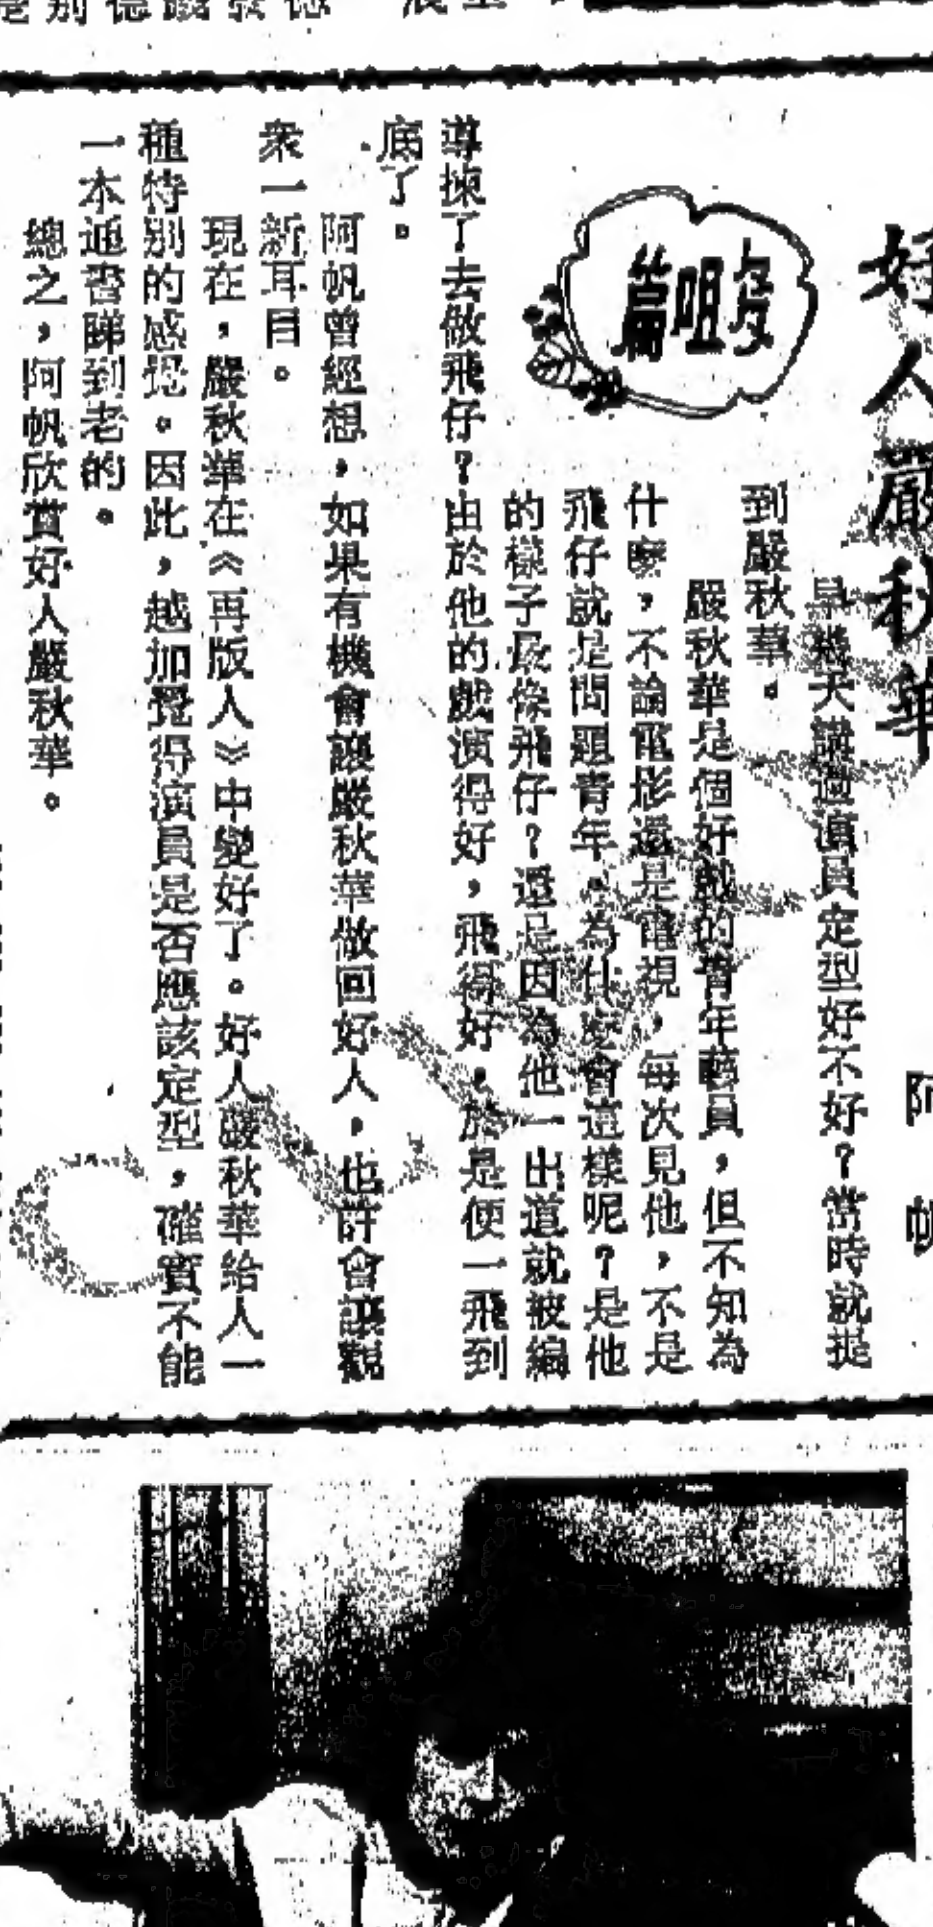 好人嚴秋華
阿帆
篇咀多
早幾天講過演員定型好不好？當時就提
到嚴秋華。
嚴秋華是個好戲的青年藝員，但不知為
什麼，不論電影還是電視，每次見他，不是
飛仔就是問題青年。為什麼會這樣呢？是他
的樣子長像飛仔？還是因為他一出道就被編
導揀了去做飛仔？由於他的戲演得好，飛得好，於是便一飛到
底了。
阿帆曾經想，如果有機會讓嚴秋華做回好人，也許會讓觀
衆一新耳目。
現在，嚴秋華在《再版人》中變好了。好人嚴秋華給人一
種特別的感覺。因此，越加覺得演員是否應該定型，確實不能
一本通書睇到老的。
總之，阿帆欣賞好人嚴秋華。